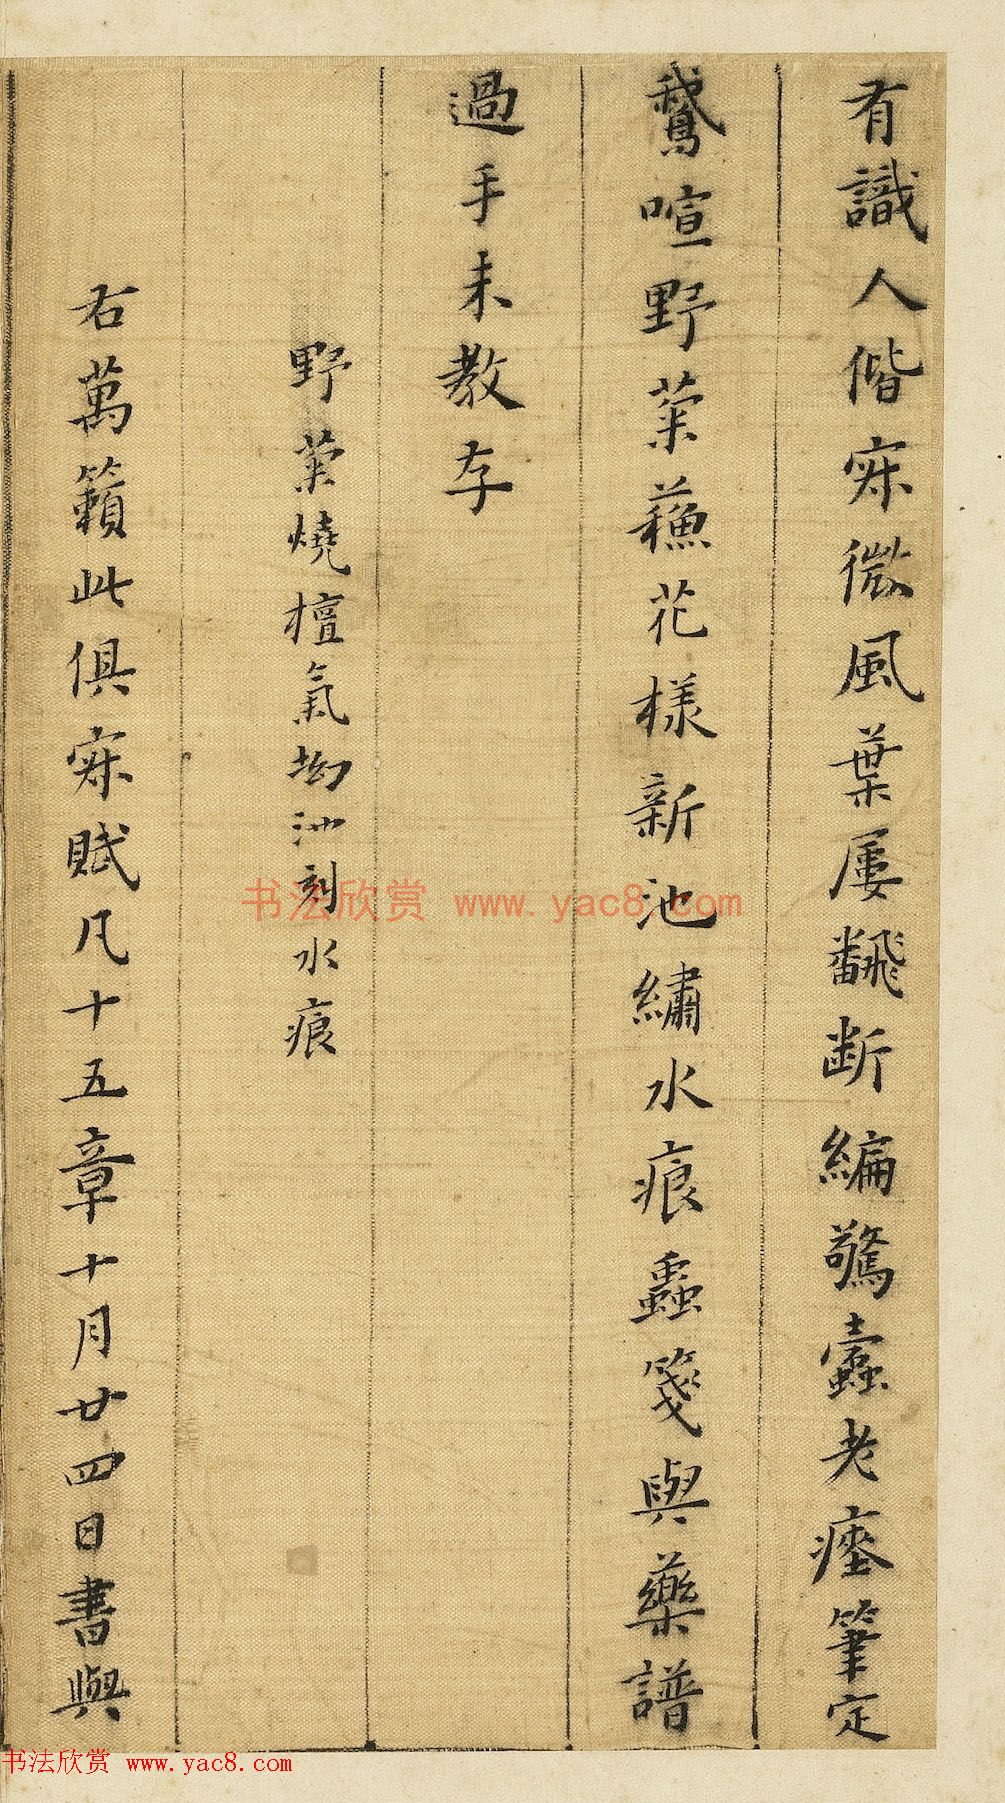 有識人偕寐微風葉屢飜断編驚蠹老瘞筆定
鵞喧野菜蘓花樣新池繡水痕蟲箋與藥譜
過手未教存
野菜燒檀氣坳池刻水痕
右萬籟此俱寐賦凡十五章十月廿四日書與
书法欣赏 www.yac8.com
书法欣赏 www.yac8.com